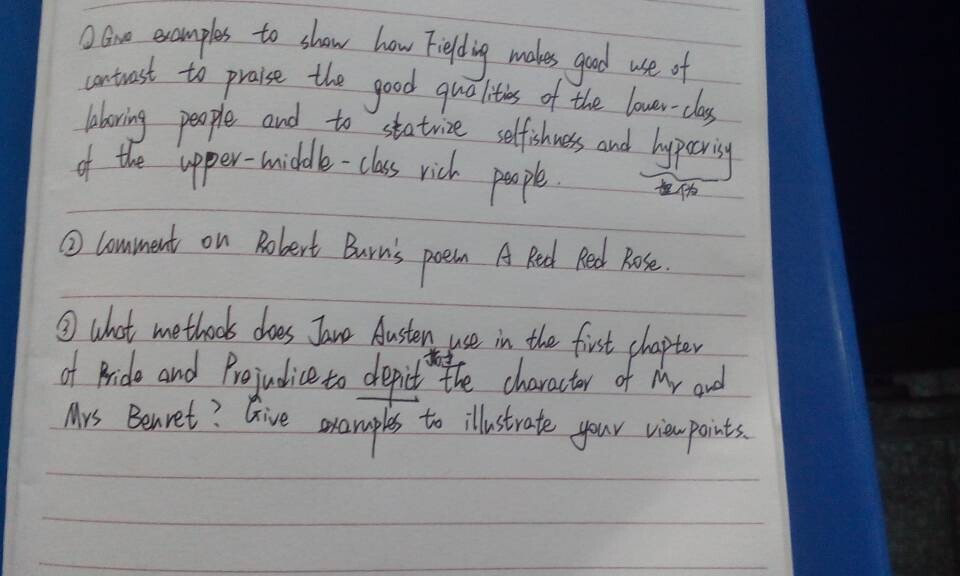 ① Give examples to show how Fielding makes good use of
contrast to praise the good qualities of the lower-class
laboring people and to statrize selfishness and hypocrisy
of the upper-middle-class rich people.
虚伪
② Comment on Robert Burn's poem A Red Red Rose.
③ What methods does Jane Austen use in the first chapter
描述
of Pride and Projudice to depict the character of Mr and
Mrs Benret? Give examples to illustrate your viewpoints.